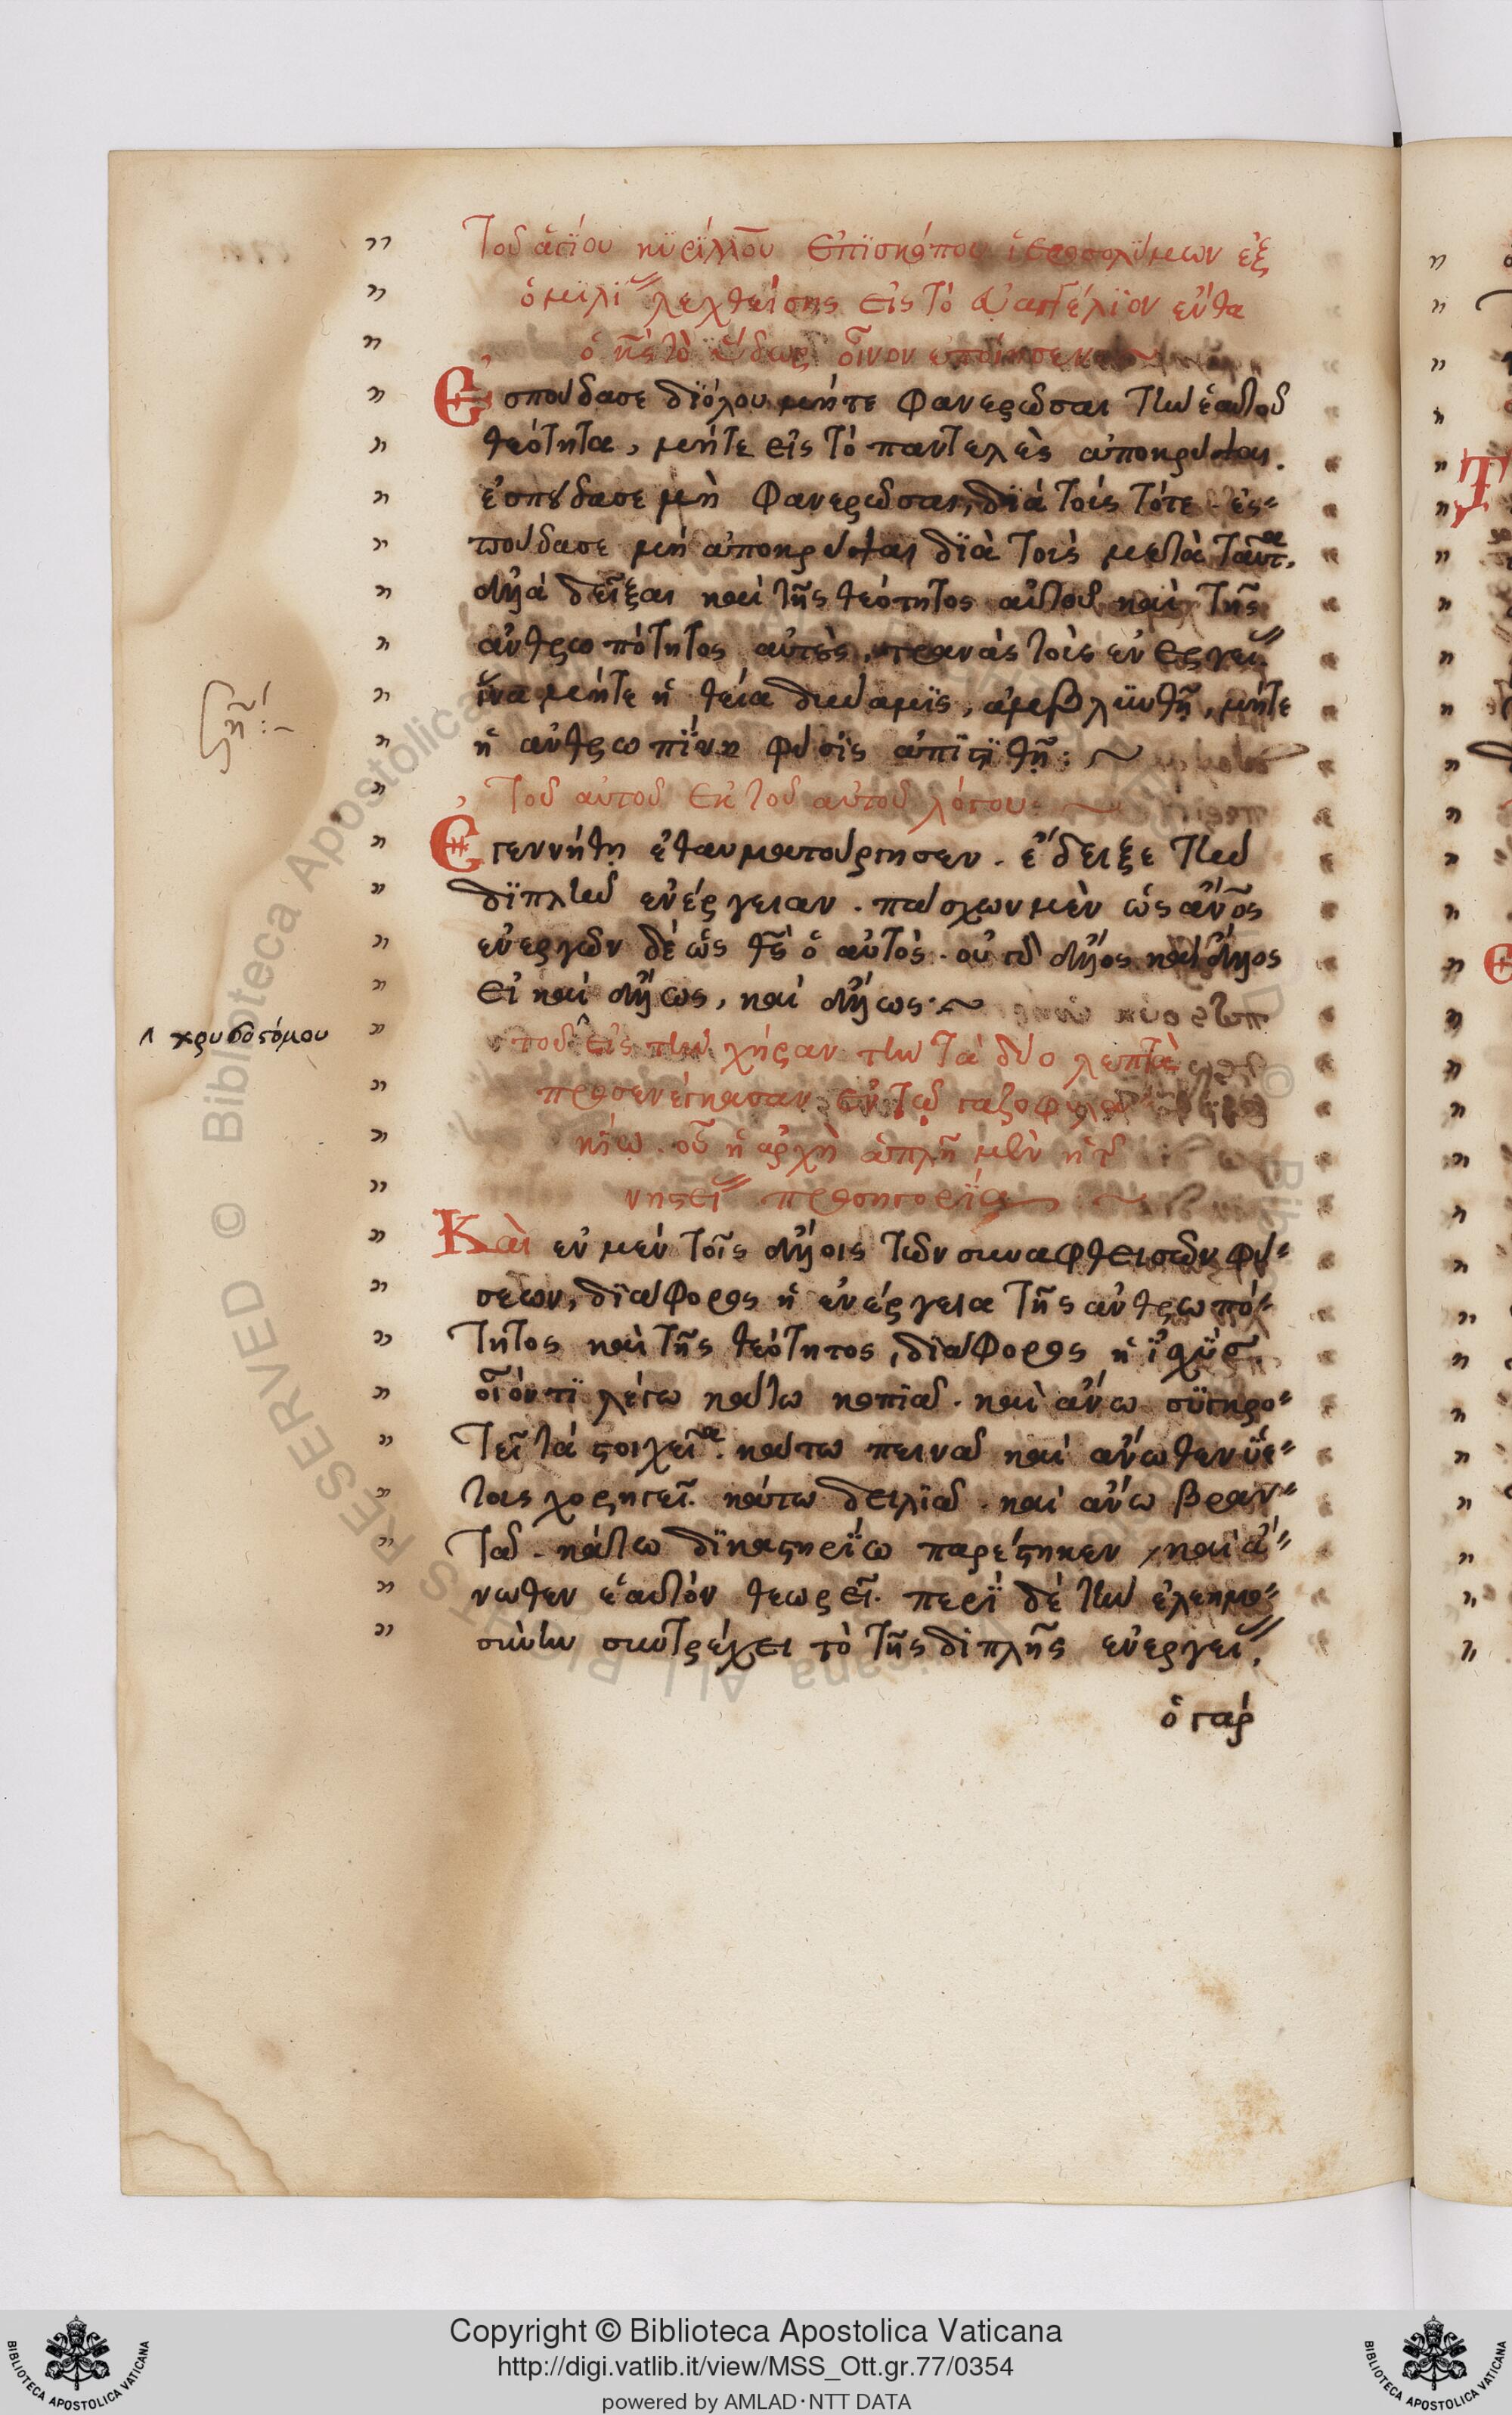 Τοῦ ἁγίου κυρίλλου ἐπισκόπου ἱεροσολύμων ἐξ
ὁμιλί λεχθείσης εἰς τὸ εὐαγγέλιον ἔνθα
ὁ κς τὸ ὕδωρ οἶνον ἐποίησεν
Ἐσπούδασε διόλου μήτε φανερῶσαι τὴν ἑαυτοῦ
θεότητα, μήτε εἰς τὸ παντελὲς ἀποκρύψαι.
ἐσπούδασε μὴ φανερῶσαι, διὰ τοὺς τότε. ἐσ
πούδασε μὴ ἀποκρύψαι διὰ τοὺς μετὰ ταῦτα.
ἀλλὰ δεῖξαι καὶ τῆς θεότητος αὐτοῦ καὶ τῆς
ἀνθρωπότητος αὐτὲς τρανὰς τοὺς ἐνεργεί
ἵνα μήτε ἡ θεία δύναμις, ἀμβλυνθῇ, μήτε
ἡ ἀνθρωπίνη φύσις ἀπιστηθῇ:
Τοῦ αὐτοῦ ἐκ τοῦ αὐτοῦ λόγου
Ἐγεννήθη ἐθαυματούργησεν. ἔδειξε τὴν
διπλὴν ἐνέργειαν. πάσχων μὲν ὡς ἄνος
ἐνεργῶν δὲ ὡς θς ὁ αὐτός. οὐ γὰρ ἄλλος καὶ ἄλλος
εἰ καὶ ἄλλως, καὶ ἄλλως:
^ χρυσοστόμου
τοῦ ^ εἰς τὴν χήραν τὴν τὰ δύο λεπτὰ
προσενέγκασαν ἐν τῷ γαζοφυλα
κίῳ. οὗ ἡ ἀρχὴ ἁπλῆ μὲν ἡ τ
νηστεί προσηγορίᾳ
Καὶ ἐν μὲν τοῖς ἄλλοις τῶν συναφθεισῶν φύ
σεων, διάφορος ἡ ἐνέργεια τῆς ἀνθρωπό
τητος καὶ τῆς θεότητος, διάφορος ἡ ἰσχύς
οἷόν τι λέγω κάτω κοπιᾷ. καὶ ἄνω συγκρο
τεῖ τὰ στοιχεῖα. κάτω πεινᾷ καὶ ἄνωθεν ὑε
τοὺς χορηγεῖ. κάτω δειλιᾷ. καὶ ἄνω βρον
τᾷ. κάτω δικαστηρίῳ παρέστηκεν, καὶ ἄ
νωθεν ἑαυτὸν θεωρεῖ. περὶ δὲ τὴν ἐλεημο
σύνην συντρέχει τὸ τῆς διπλῆς ἐνεργεί,
ὁ γὰρ
Copyright © Biblioteca Apostolica Vaticana
http://digi.vatlib.it/view/MSS_Ott.gr.77/0354
powered by AMLAD·NTT DATA